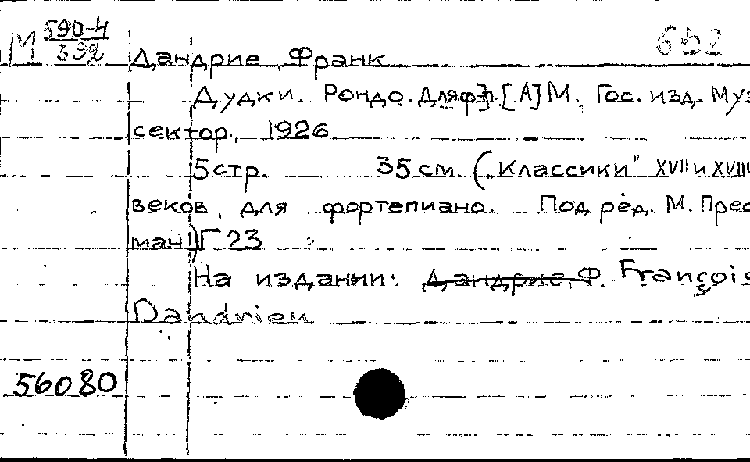 М 590-4/392
652
Дандрие, Франк
Дудки. Рондо. Для фп. [А] М. Гос. изд. Муз.
сектор, 1926
5 стр. 35 см. („Классики" XVII и XVIII
веков, для фортепиано. Под ред. М. Прес
ман) Г 23
На издании: Дандрие, Ф. François
Dandrieu
56080